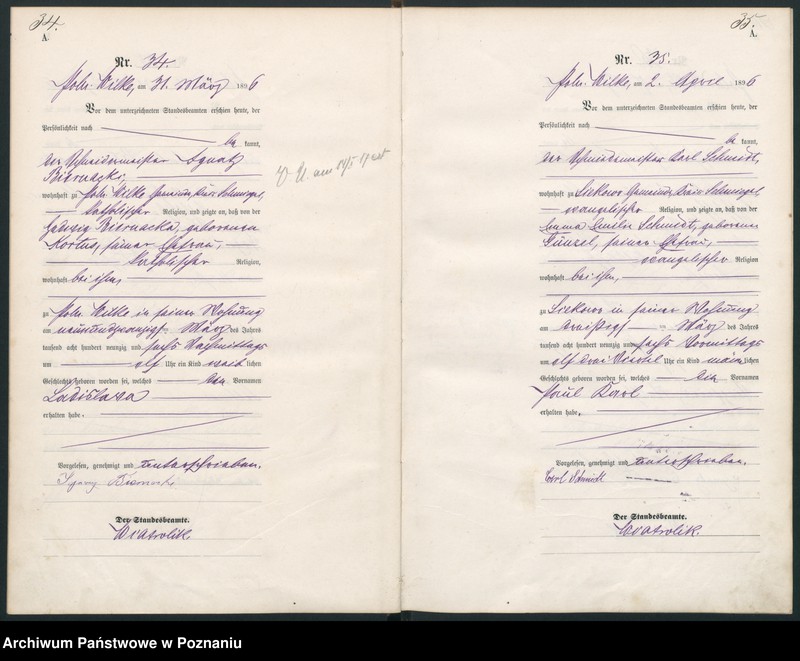 34.
A.
Nr. 34.
Poln. Wilke, am 31. März 1896
Vor dem unterzeichneten Standesbeamten erschien heute, der
Persönlichkeit nach
be kannt,
der Schneidermeister Ignatz
Biernacki,
wohnhaft zu Poln. Wilke Gemeinde, Kreis Schmiegel,
katholischer Religion, und zeigte an, daß von der
Hedwig Biernacka, geborenen
Kortus, seiner Ehefrau,
katholischer Religion,
wohnhaft bei ihm,
zu Poln. Wilke in seiner Wohnung
am neunundzwanzigsten März des Jahres
tausend acht hundert neunzig und sechs Nachmittags
um elf Uhr ein Kind weib lichen
Geschlechts geboren worden sei, welches den Vornamen
Ladislava
erhalten habe.
Vorgelesen, genehmigt und unterschrieben.
Der Standesbeamte.
Wiatrolik
35.
A.
Nr. 35.
Poln. Wilke, am 2. April 1896
Vor dem unterzeichneten Standesbeamten erschien heute, der
Persönlichkeit nach
be kannt,
der Schmiedemeister Karl Schmidt,
wohnhaft zu Siekowo Gemeinde, Kreis Schmiegel,
evangelischer Religion, und zeigte an, daß von der
Emma Emilie Schmidt, geborenen
Günzel, seiner Ehefrau,
evangelischer Religion
wohnhaft bei ihm,
zu Siekowo in seiner Wohnung
am dreißigsten März des Jahres
tausend acht hundert neunzig und sechs Vormittags
um elf drei Viertel Uhr ein Kind männ lichen
Geschlechts geboren worden sei, welches den Vornamen
Paul Karl
erhalten habe.
Vorgelesen, genehmigt und unterschrieben.
Carl Schmidt
Der Standesbeamte.
Wiatrolik.
Archiwum Państwowe w Poznaniu